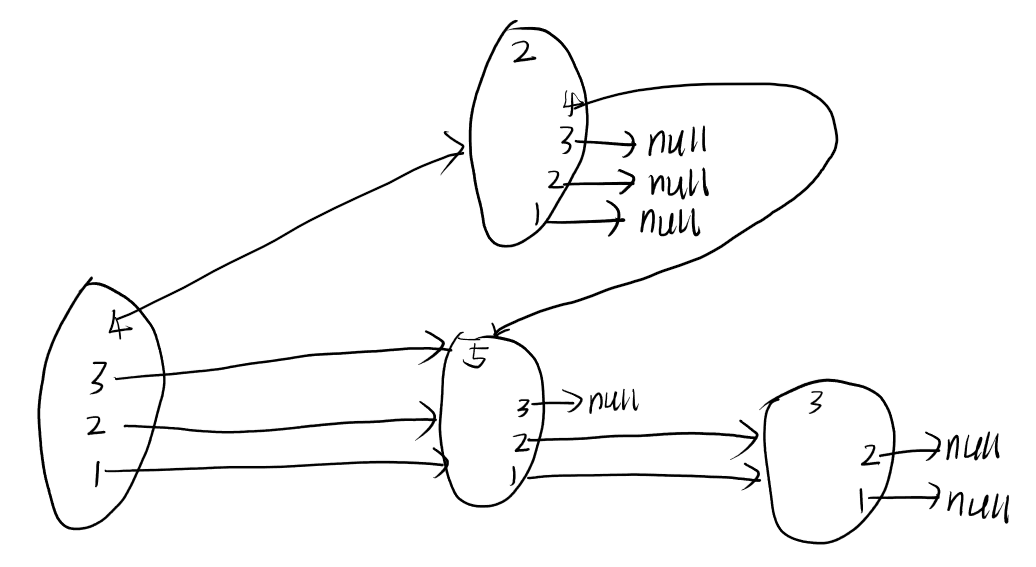 2
4
3 null
2 null
1 null
4
3
2
1
5
3 null
2
1
3
2 null
1 null